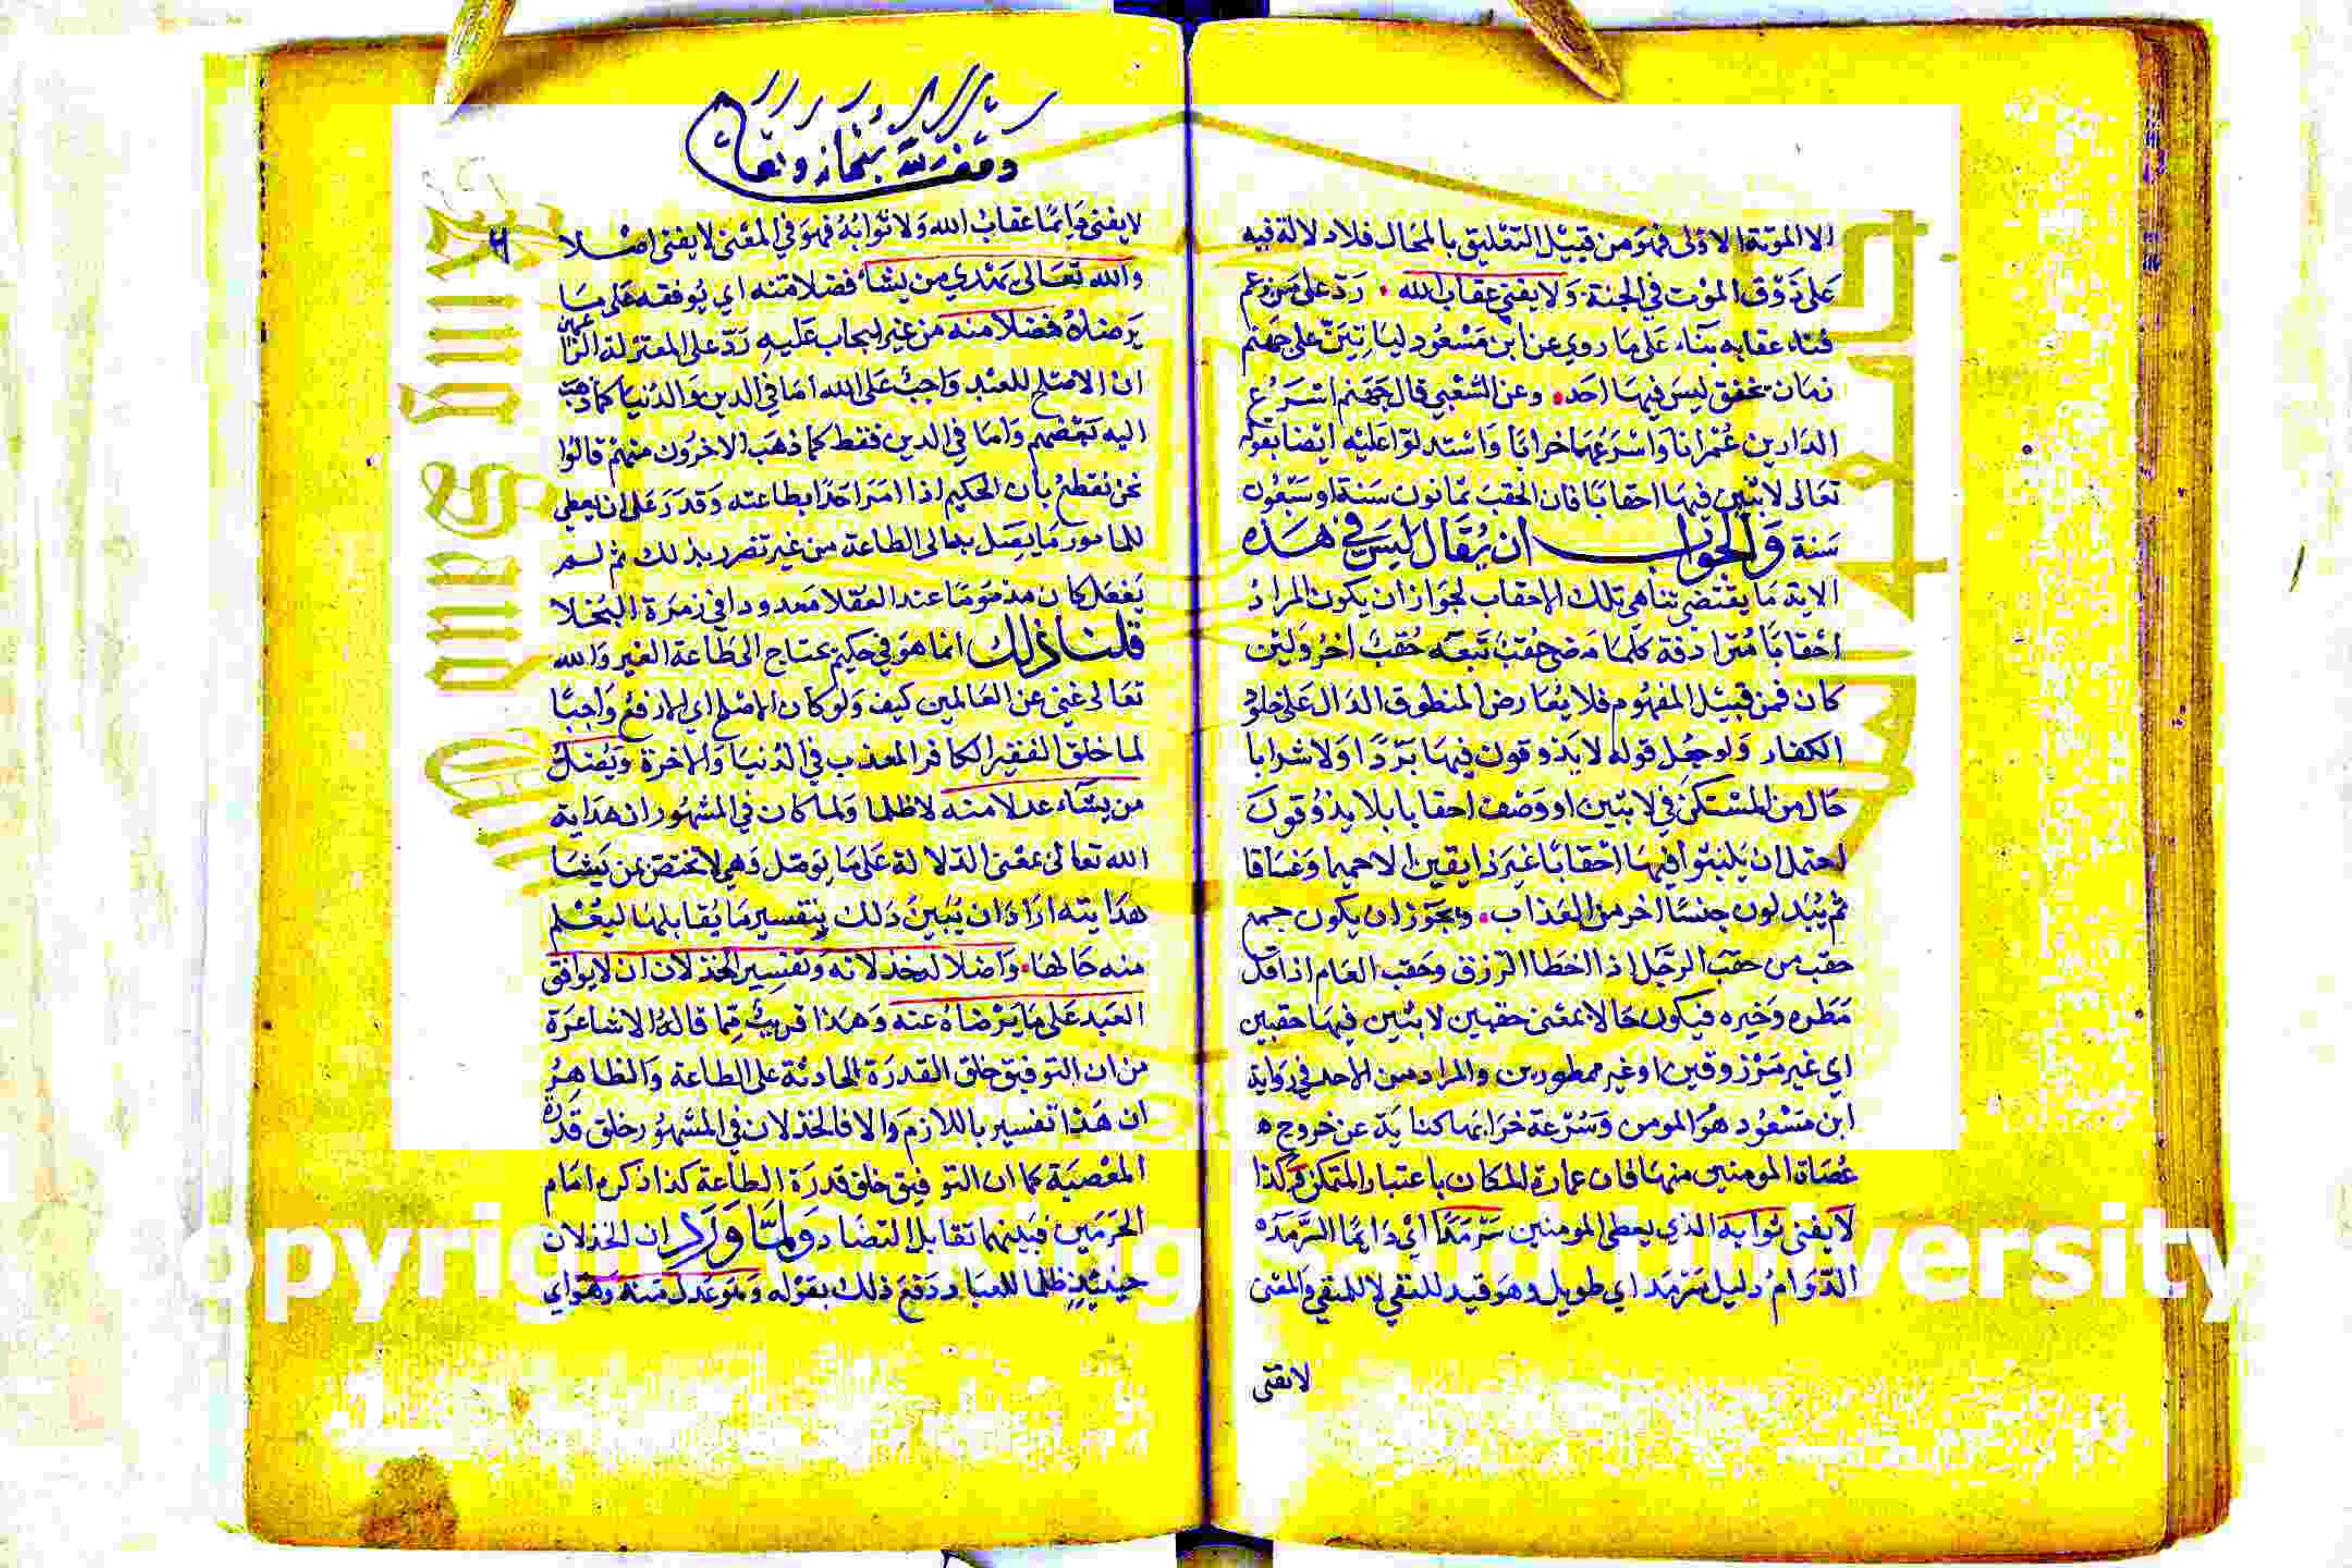 الا الموتة الاولى فهو من قبيل التعليق بالمحال فلا دلالة فيه
على ذوق الموت في الجنة ولا يفنى عقاب الله رد على من زعم
فناء عقابه بناء على ما روي عن ابن مسعود لياتين على جهنم
زمان تخفق ليس فيها احد وعن الشعبي قال جهنم اسرع
الدارين عمرانا واسرعهما خرابا واستدلوا عليه ايضا بقوله
تعالى لابثين فيها احقابا فان الحقب ثمانون سنة او سبعون
سنة والجواب ان يقال ليس في هذه
الاية ما يقتضي تناهي تلك الاحقاب لجواز ان يكون المراد
احقابا مترادفة كلما مضى حقب تبعه حقب اخر ولئن
كان فمن قبيل المفهوم فلا يعارض المنطوق الدال على خلود
الكفار ولو جعل قوله لا يذوقون فيها بردا ولا شرابا
حال من المستكن في لابثين او وصف احقابا بلا يذوقون
احتمل ان يلبثوا فيها احقابا غير ذايقين الا حميما وغساقا
ثم يبدلون جنسا اخر من العذاب ويجوز ان يكون جمع
حقب من حقب الرجل اذا اخطا الرزق وحقب العام اذا قل
مطره وخيره فيكون حالا بمعنى حقبين لابثين فيها حقبين
اي غير مرزوقين او غير ممطورين والمراد من الاحد في رواية
ابن مسعود هو المومن وسرعة خرابها كناية عن خروج
عصاة المومنين منها فان عمارة المكان باعتبار المتمكن وكذا
لا يفنى ثوابه الذي يعطى المومنين سرمدا اي دايما السرمد
الدوام دليل سرمد اي طويل وهو قيد للنفي لا للمنفي والمعنى
لا يفنى
لا يفنى دايما عقاب الله ولا ثوابه فهو في المعنى لا يفنى اصلا
والله تعالى يهدي من يشاء فضلا منه اي يوفقه على ما
يرضاه فضلا منه من غير ايجاب عليه رد على المعتزلة الزاعمين
ان الاصلح للعبد واجب على الله اما في الدين والدنيا كما ذهب
اليه بعضهم واما في الدين فقط كما ذهب الاخرون منهم قالوا
نحن نقطع بان الحكيم اذا امر احدا بطاعته وقدر على ان يعطي
للمامور ما يصل به الى الطاعة من غير تضرر بذلك ثم لم
يفعل كان مذموما عند العقلا معدودا في زمرة البخلا
قلنا ذلك انما هو في حكيم يحتاج الى طاعة الغير والله
تعالى غني عن العالمين كيف ولو كان الاصلح اي الانفع واجبا
لما خلق الفقير الكافر المعذب في الدنيا والاخرة ويضل
من يشاء عدلا منه لا ظلما ولما كان في المشهور ان هداية
الله تعالى بمعنى الدلالة على ما يوصل وهي لا تختص بمن يشا
هدايته اراد ان يبين ذلك بتفسير ما يقابلها ليعلم
منه حالها واضلاله خذلانه وتفسير الخذلان ان لا يوافق
العبد على ما يرضاه عنه وهذا قريب مما قاله الاشاعرة
من ان التوفيق خلق القدرة الحادثة على الطاعة والظاهر
ان هذا تفسير باللازم والا فالخذلان في المشهور خلق قدرة
المعصية كما ان التوفيق خلق قدرة الطاعة كذا ذكره امام
الحرمين فبينهما تقابل التضاد ولما ورد ان الخذلان
حينئذ ظلما للعباد دفع ذلك بقوله وهو عدل منه وهو اي